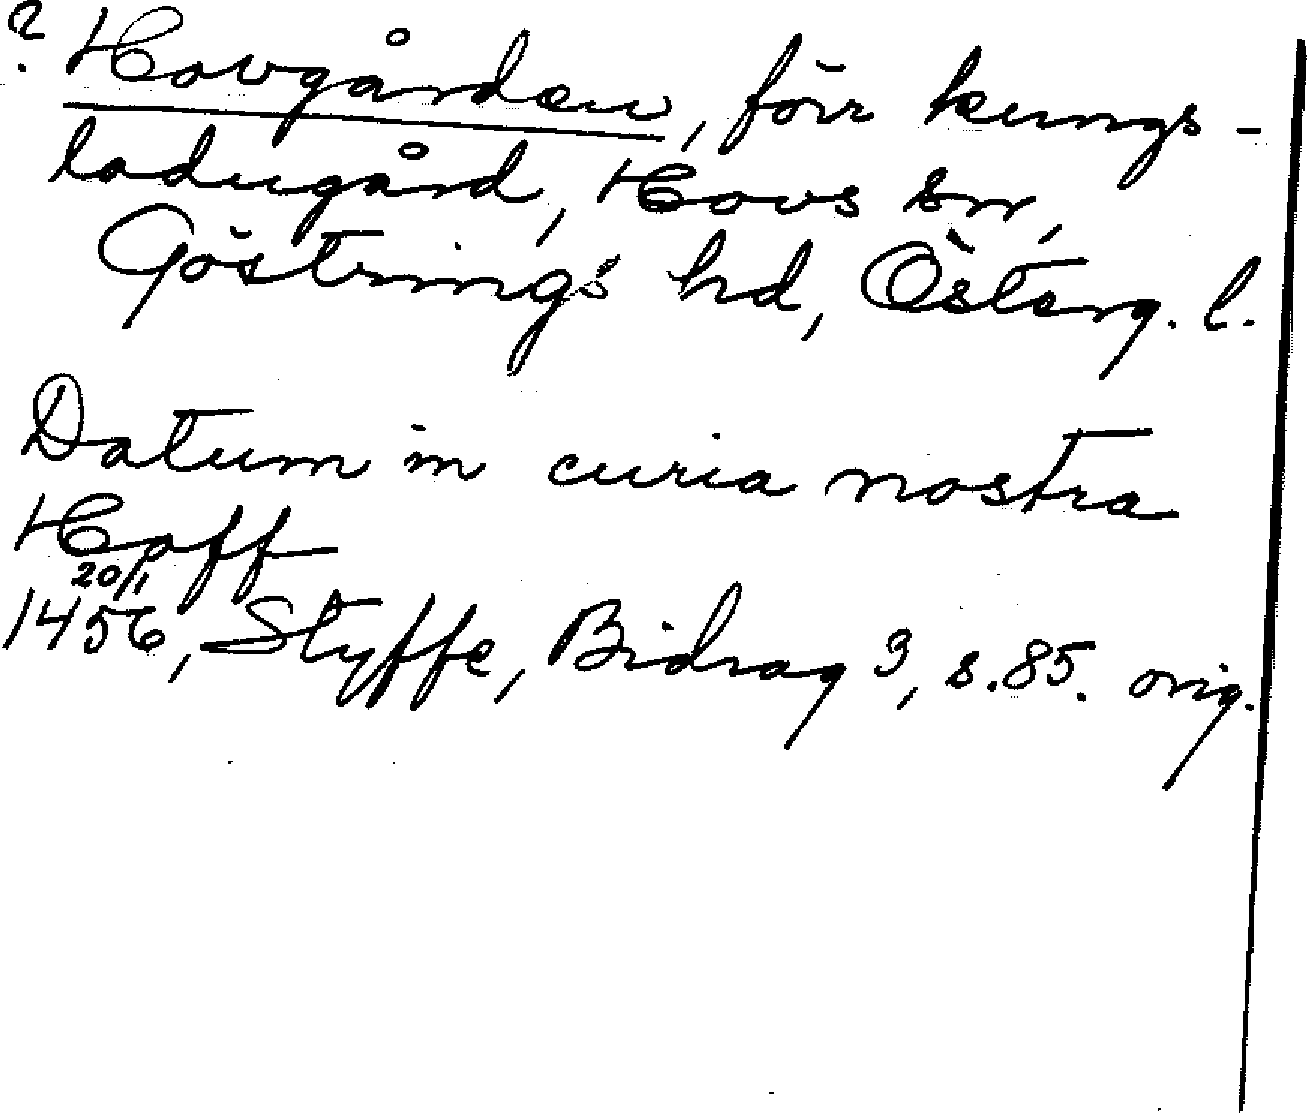 ? Hovgården, förr kungs-
ladugård, Hovs sn,
Göstrings hd, Österg. l.
Datum in curia nostra
Hoff
20/1
1456, Styffe, Bidrag 3, s. 85. orig.